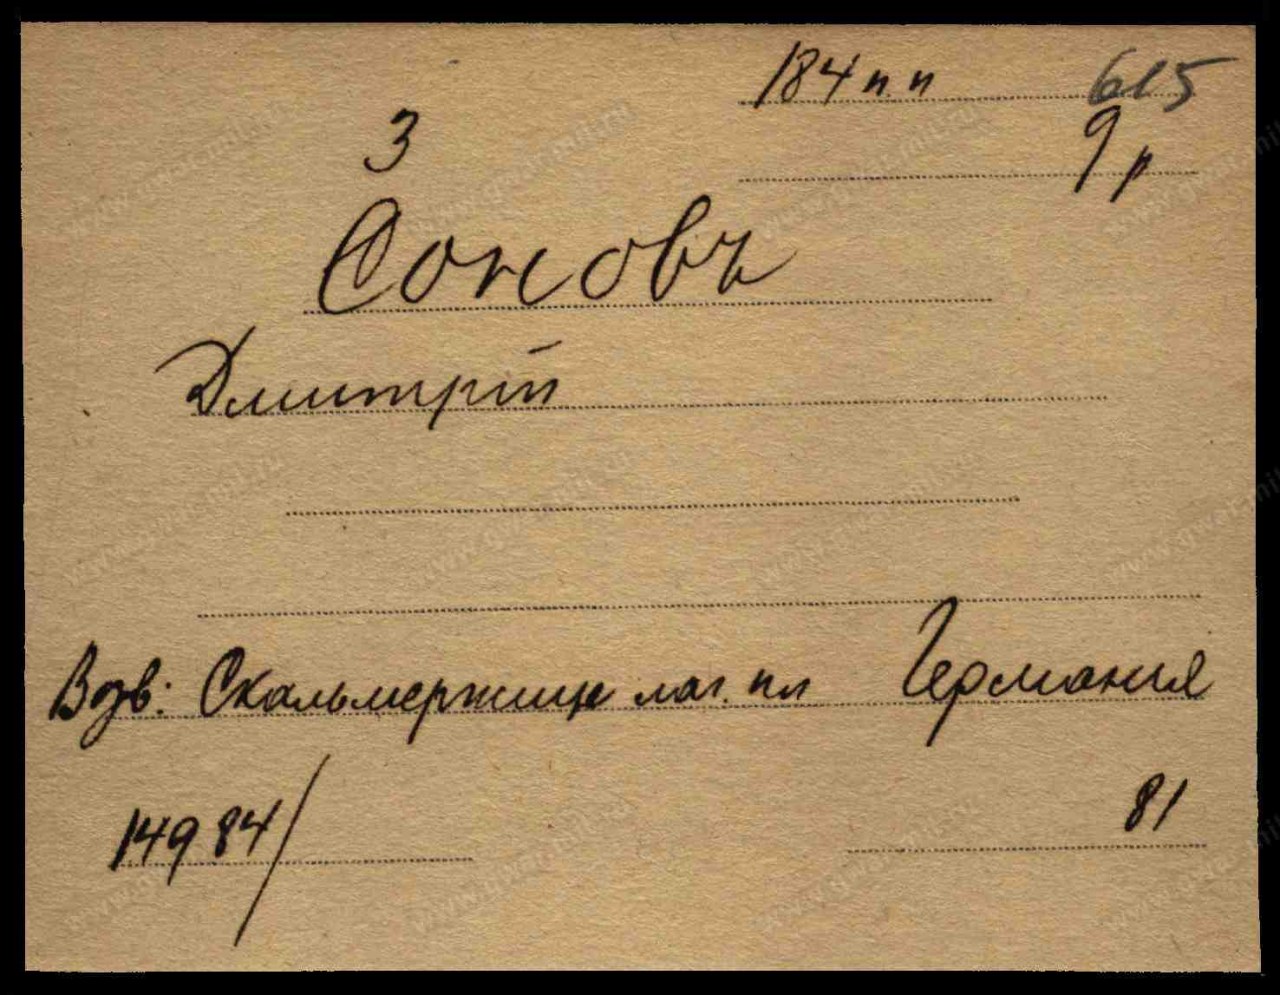 184 п.п 615
3 9 р
Соновъ
Дмитрій
Возв: Скальмержице лаг. пл Германия
14984/ 81